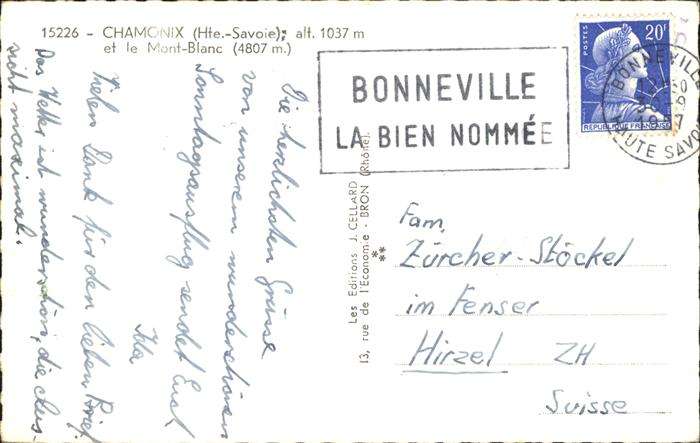 15226 - CHAMONIX (Hte.-Savoie); alt. 1037 m
et le Mont-Blanc (4807 m.)
BONNEVILLE
LA BIEN NOMMÉE
POSTES
20F
RÉPUBLIQUE FRANÇAISE
BONNEVILLE
HAUTE SAVOIE
Les Editions J. CELLARD
13, rue de l'Economie - BRON (Rhône)
**
Die herzlichsten Grüsse
von unserem wunderschönen
Sonntagsausflug sendet Euch
Ida
Vielen Dank für den lieben Brief.
Das Wetter ist wunderschön, die Aus-
sicht maximal.
Fam.
Zürcher-Stöckel
im Fenser
Hirzel ZH
Suisse